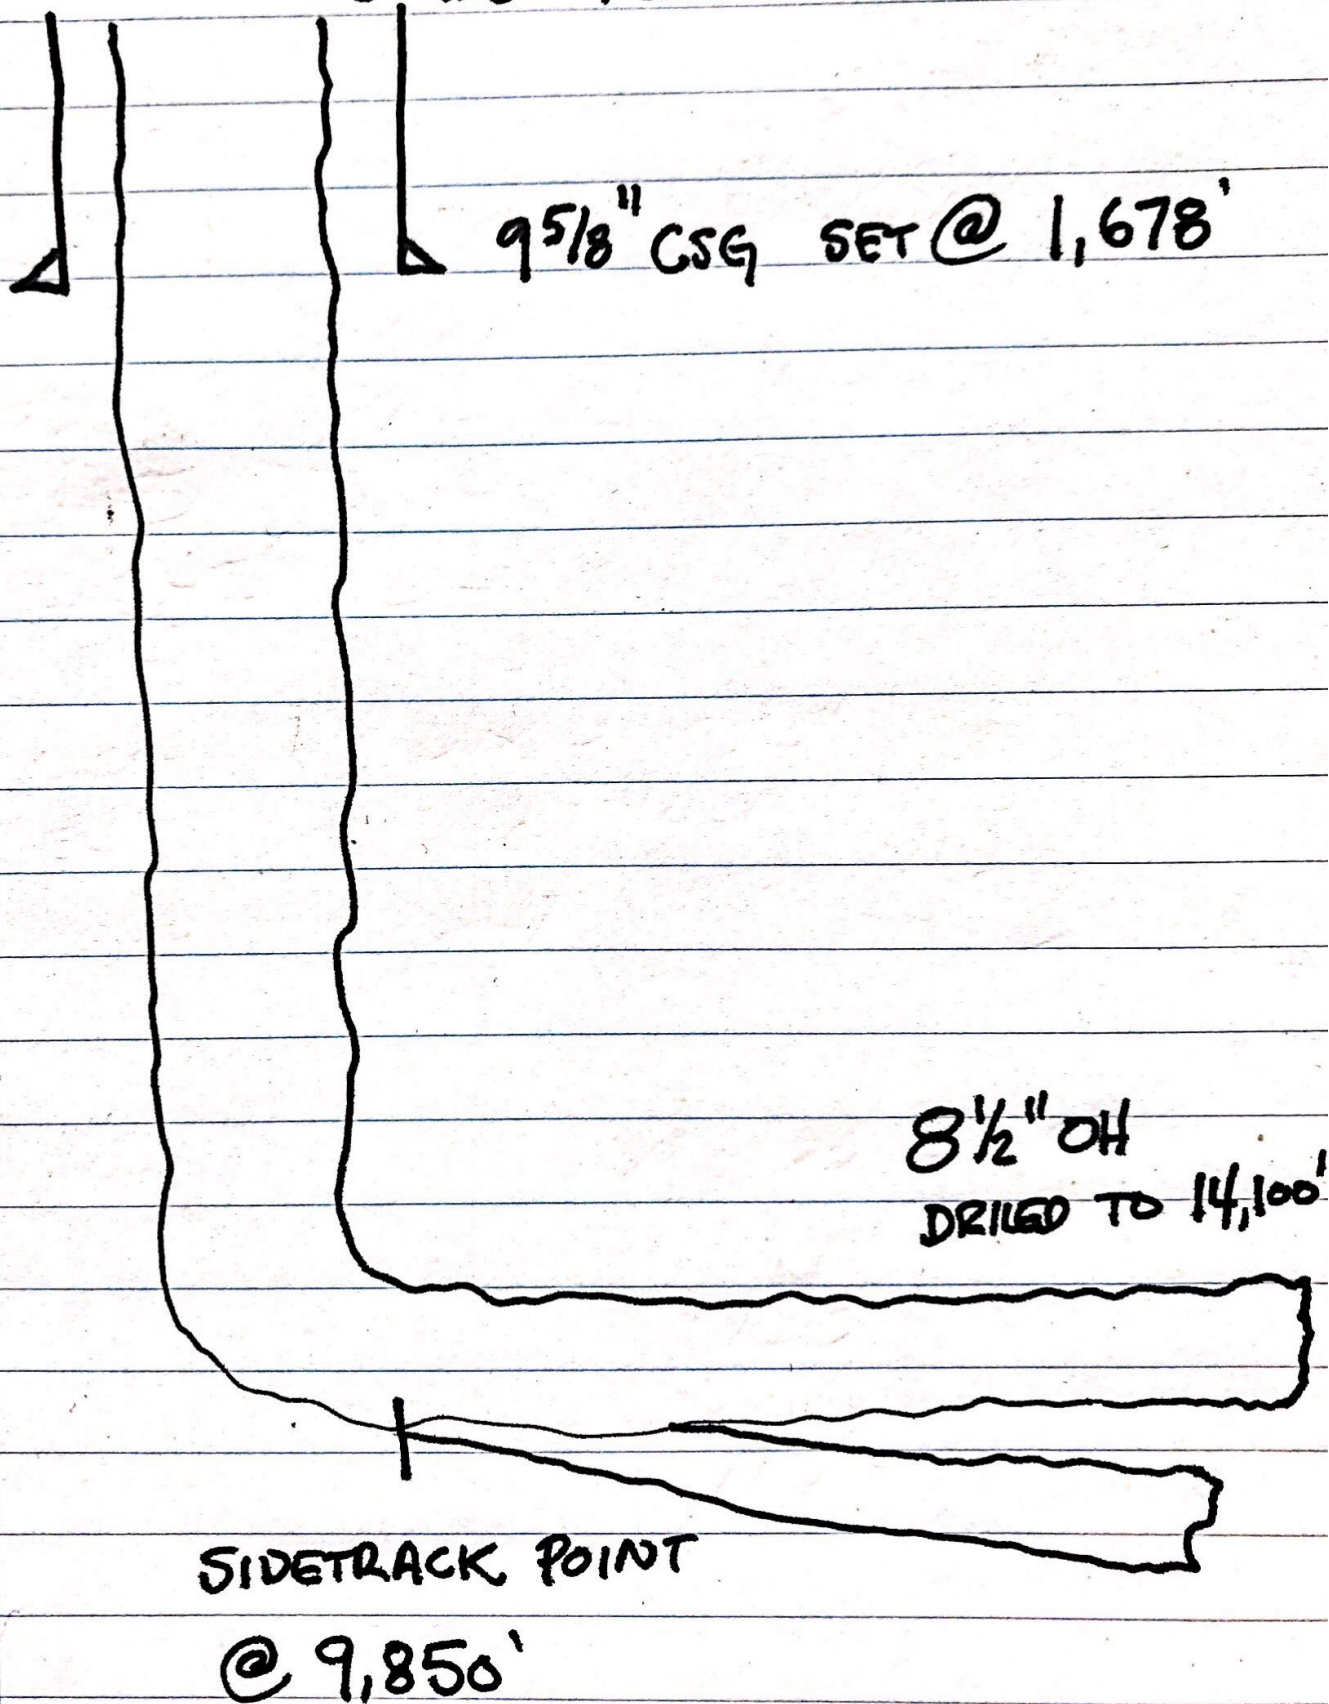 9 5/8" CSG SET @ 1,678'
8 1/2" OH
DRILED TO 14,100'
SIDETRACK POINT
@ 9,850'